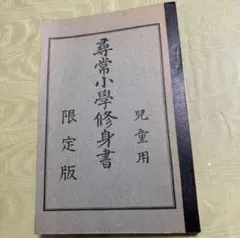 兒童用
尋常小學修身書
限定版